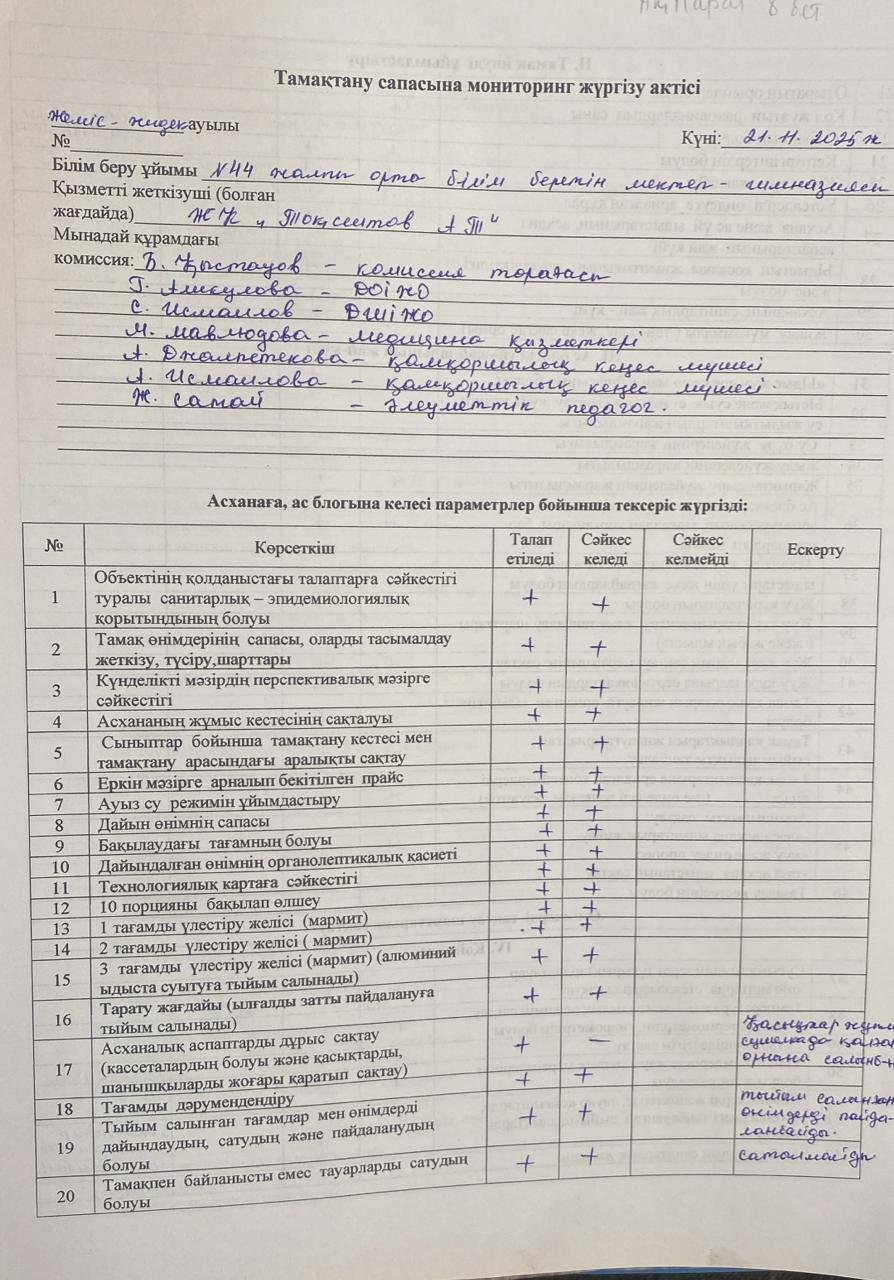 Ақпарат 8 бет
Тамақтану сапасына мониторинг жүргізу актісі
Жеміс - жидек ауылы
№
Күні: 21. 11. 2025 ж
Білім беру ұйымы N44 жалпы орта білім беретін мектеп - гимназиясы
Қызметті жеткізуші (болған
жағдайда) ЖК "Тоқсеитов А Т"
Мынадай құрамдағы
комиссия: Б. Қыстауов - комиссия төрағасы
Г. Аликулова - ДОІЖО
С. Исмаилов - ДШІЖО
М. Мавлюдова - медицина қызметкері
А. Джалпетекова - қамқоршылық кеңес мүшесі
А. Исмаилова - қамқоршылық кеңес мүшесі
Ж. Самай - Әлеуметтік педагог.
Асханаға, ас блогына келесі параметрлер бойынша тексеріс жүргізді:
№ Көрсеткіш Талап етіледі Сәйкес келеді Сәйкес келмейді Ескерту
1 Объектінің қолданыстағы талаптарға сәйкестігі
туралы санитарлық – эпидемиологиялық
қорытындының болуы + +
2 Тамақ өнімдерінің сапасы, оларды тасымалдау
жеткізу, түсіру,шарттары + +
3 Күнделікті мәзірдің перспективалық мәзірге
сәйкестігі + +
4 Асхананың жұмыс кестесінің сақталуы + +
5 Сыныптар бойынша тамақтану кестесі мен
тамақтану арасындағы аралықты сақтау + +
6 Еркін мәзірге арналып бекітілген прайс + +
7 Ауыз су режимін ұйымдастыру + +
8 Дайын өнімнің сапасы + +
9 Бақылаудағы тағамның болуы + +
10 Дайындалған өнімнің органолептикалық қасиеті + +
11 Технологиялық картаға сәйкестігі + +
12 10 порцияны бақылап өлшеу + +
13 1 тағамды үлестіру желісі (мармит) + +
14 2 тағамды үлестіру желісі ( мармит)
15 3 тағамды үлестіру желісі (мармит) (алюминий
ыдыста суытуға тыйым салынады) + +
16 Тарату жағдайы (ылғалды затты пайдалануға
тыйым салынады) + +
17 Асханалық аспаптарды дұрыс сақтау
(кассеталардың болуы және қасықтарды,
шанышқыларды жоғары қаратып сақтау) + –
Қасықтар
орнына
18 Тағамды дәрумендендіру + +
19 Тыйым салынған тағамдар мен өнімдерді
дайындаудың, сатудың және пайдаланудың
болуы + +
тыйым салынған
өнімдерді пайда-
ланбайды.
20 Тамақпен байланысты емес тауарларды сатудың
болуы + +
сатылмайды